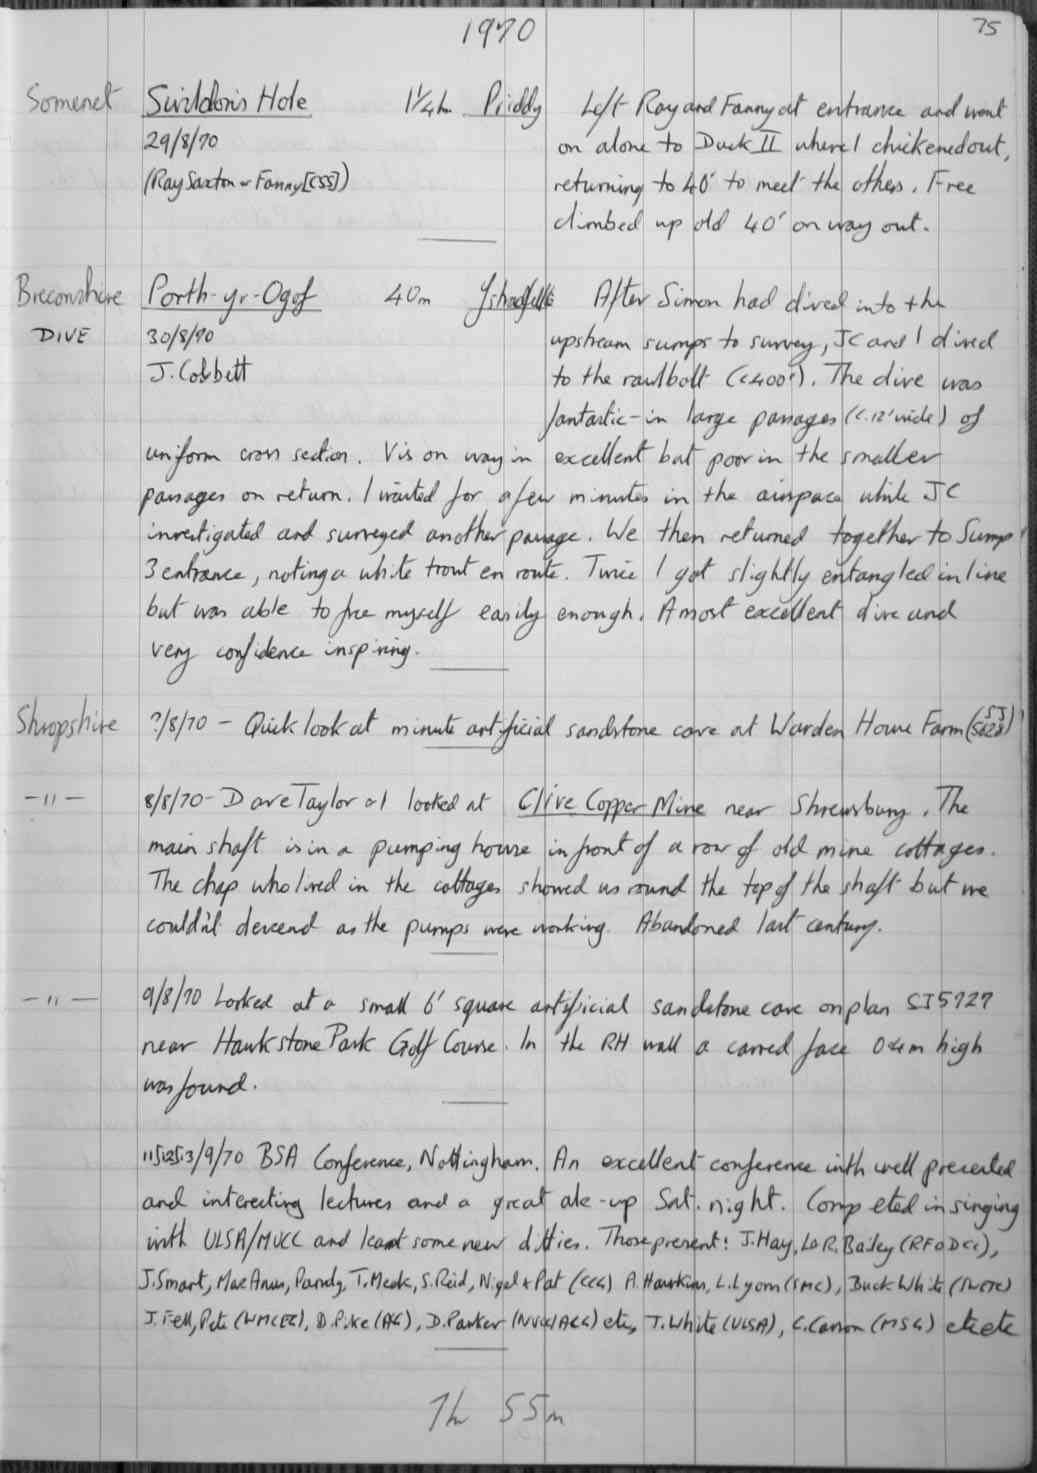 1970
75
Somerset Swildon's Hole 1¼h Priddy Left Ray and Fanny at entrance and went
29/8/70 on alone to Duck II where I chickened out,
(Ray Saxton & Fanny [CSS]) returning to 40' to meet the others. Free
climbed up old 40' on way out.
Breconshire Porth-yr-Ogof 40m Ystradfellte After Simon had dived into the
DIVE 30/8/70 upstream sumps to survey, JC and I dived
J. Cobbett to the rawlbolt (c400'). The dive was
fantastic - in large passages (c.12' wide) of
uniform cross section. Vis on way in excellent but poor in the smaller
passages on return. I waited for a few minutes in the airspace while JC
investigated and surveyed another passage. We then returned together to Sump
3 entrance, noting a white trout en route. Twice I got slightly entangled in line
but was able to free myself easily enough. A most excellent dive and
very confidence inspiring.
Shropshire ?/8/70 - Quick look at minute artificial sandstone cave at Warden House Farm (SJ
-"- 8/8/70 - Dave Taylor & I looked at Clive Copper Mine near Shrewsbury. The
main shaft is in a pumping house in front of a row of old mine cottages.
The chap who lived in the cottages showed us round the top of the shaft but we
couldn't descend as the pumps were working. Abandoned last century.
-"- 9/8/70 Looked at a small 6' square artificial sandstone cave on plan SJ5727
near Hawkstone Park Golf Course. In the RH wall a carved face 0.4m high
was found.
11,12,13/9/70 BSA Conference, Nottingham. An excellent conference with well presented
and interesting lectures and a great ale-up Sat. night. Competed in singing
with ULSA/MUCC and learnt some new ditties. Those present: J. Hay, R. Bailey
J. Smart, MacAnus, Pandy, T. Meek, S. Reid, Nigel & Pat (CCG) A. Hawkins, L. Lyons (SMC), Buck White
J. Fell, Pete (WMCEC), D. Pike (AG), D. Parker etc, T. White (ULSA), C. Cannon (MSG) etc etc
1h 55m